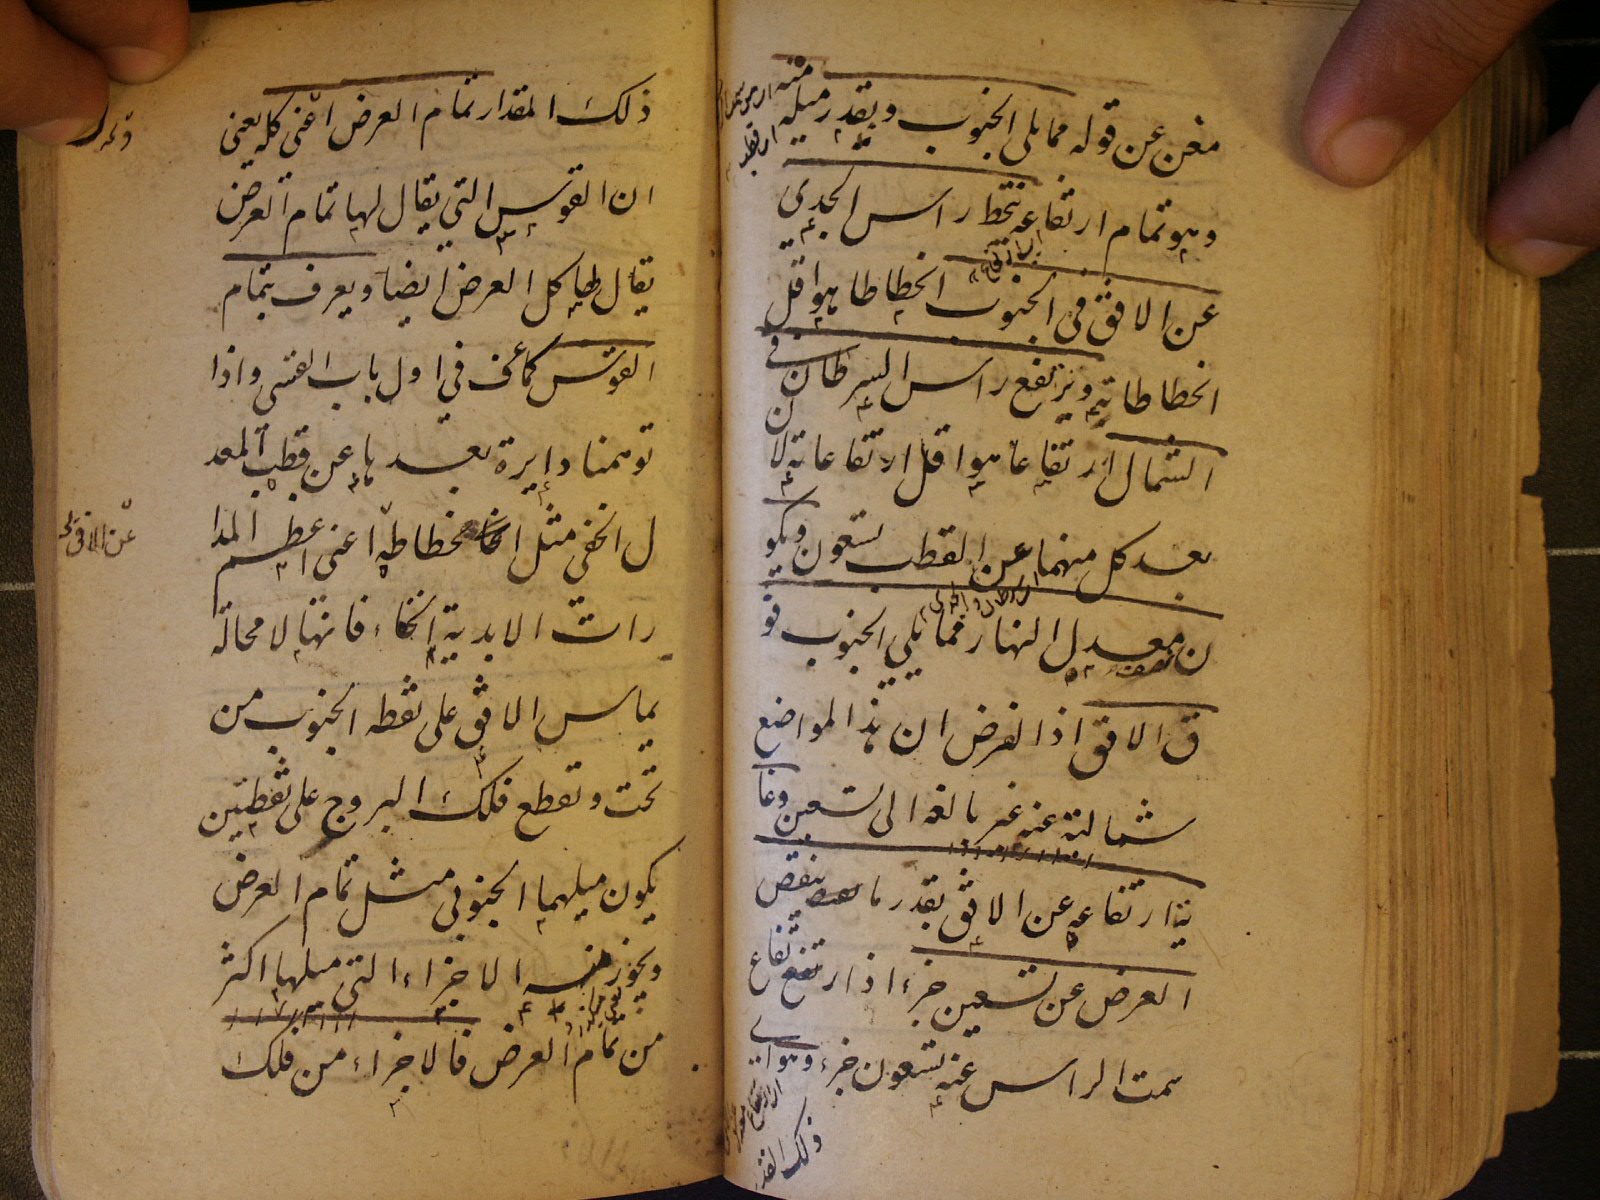 مغن عن قوله مما يلى الجنوب وبقدر ميله
وهو تمام ارتفاعه ينحط راس الجدي
عن الافق فى الجنوب انحطاطا هو اقل
انحطاطاته ويرتفع راس السرطان فى
الشمال ارتفاعا هو اقل ارتفاعاته لا ن
بعد كل منهما عن القطب تسعون ويكو
ن معدل النهار مما يلي الجنوب فو
ق الافق اذا لفرض ان هذا المواضع
شمالية عنه غير بالغة الى تسعين وغا
ية ارتفاعه عن الافق بقدر ما ينقص
العرض عن تسعين جزءا اذ ارتفع تفاع
سمت الراس عنه تسعون جزء وهو اى
ذلك القد
ذلك المقدار تمام العرض اعنى كله يعنى
ان القوس التي يقال لها تمام العرض
يقال لها كل العرض ايضا ويعرف بتمام
القوس كما عرف في اول باب القسى واذا
توهمنا دايرة بعدها عن قطب المعد
ل الخفى مثل انحطاطه اعنى اعظم المدا
رات الابدية الخفاء فانها لا محالة
يماس الافق على نقطه الجنوب من
تحت وتقطع فلك البروج على نقطتين
يكون ميلهما الجنوبى مثل تمام العرض
ويجوز منه الاجزاء التى ميلها اكثر
من تمام العرض فالاجزاء من فلك
عن الافق